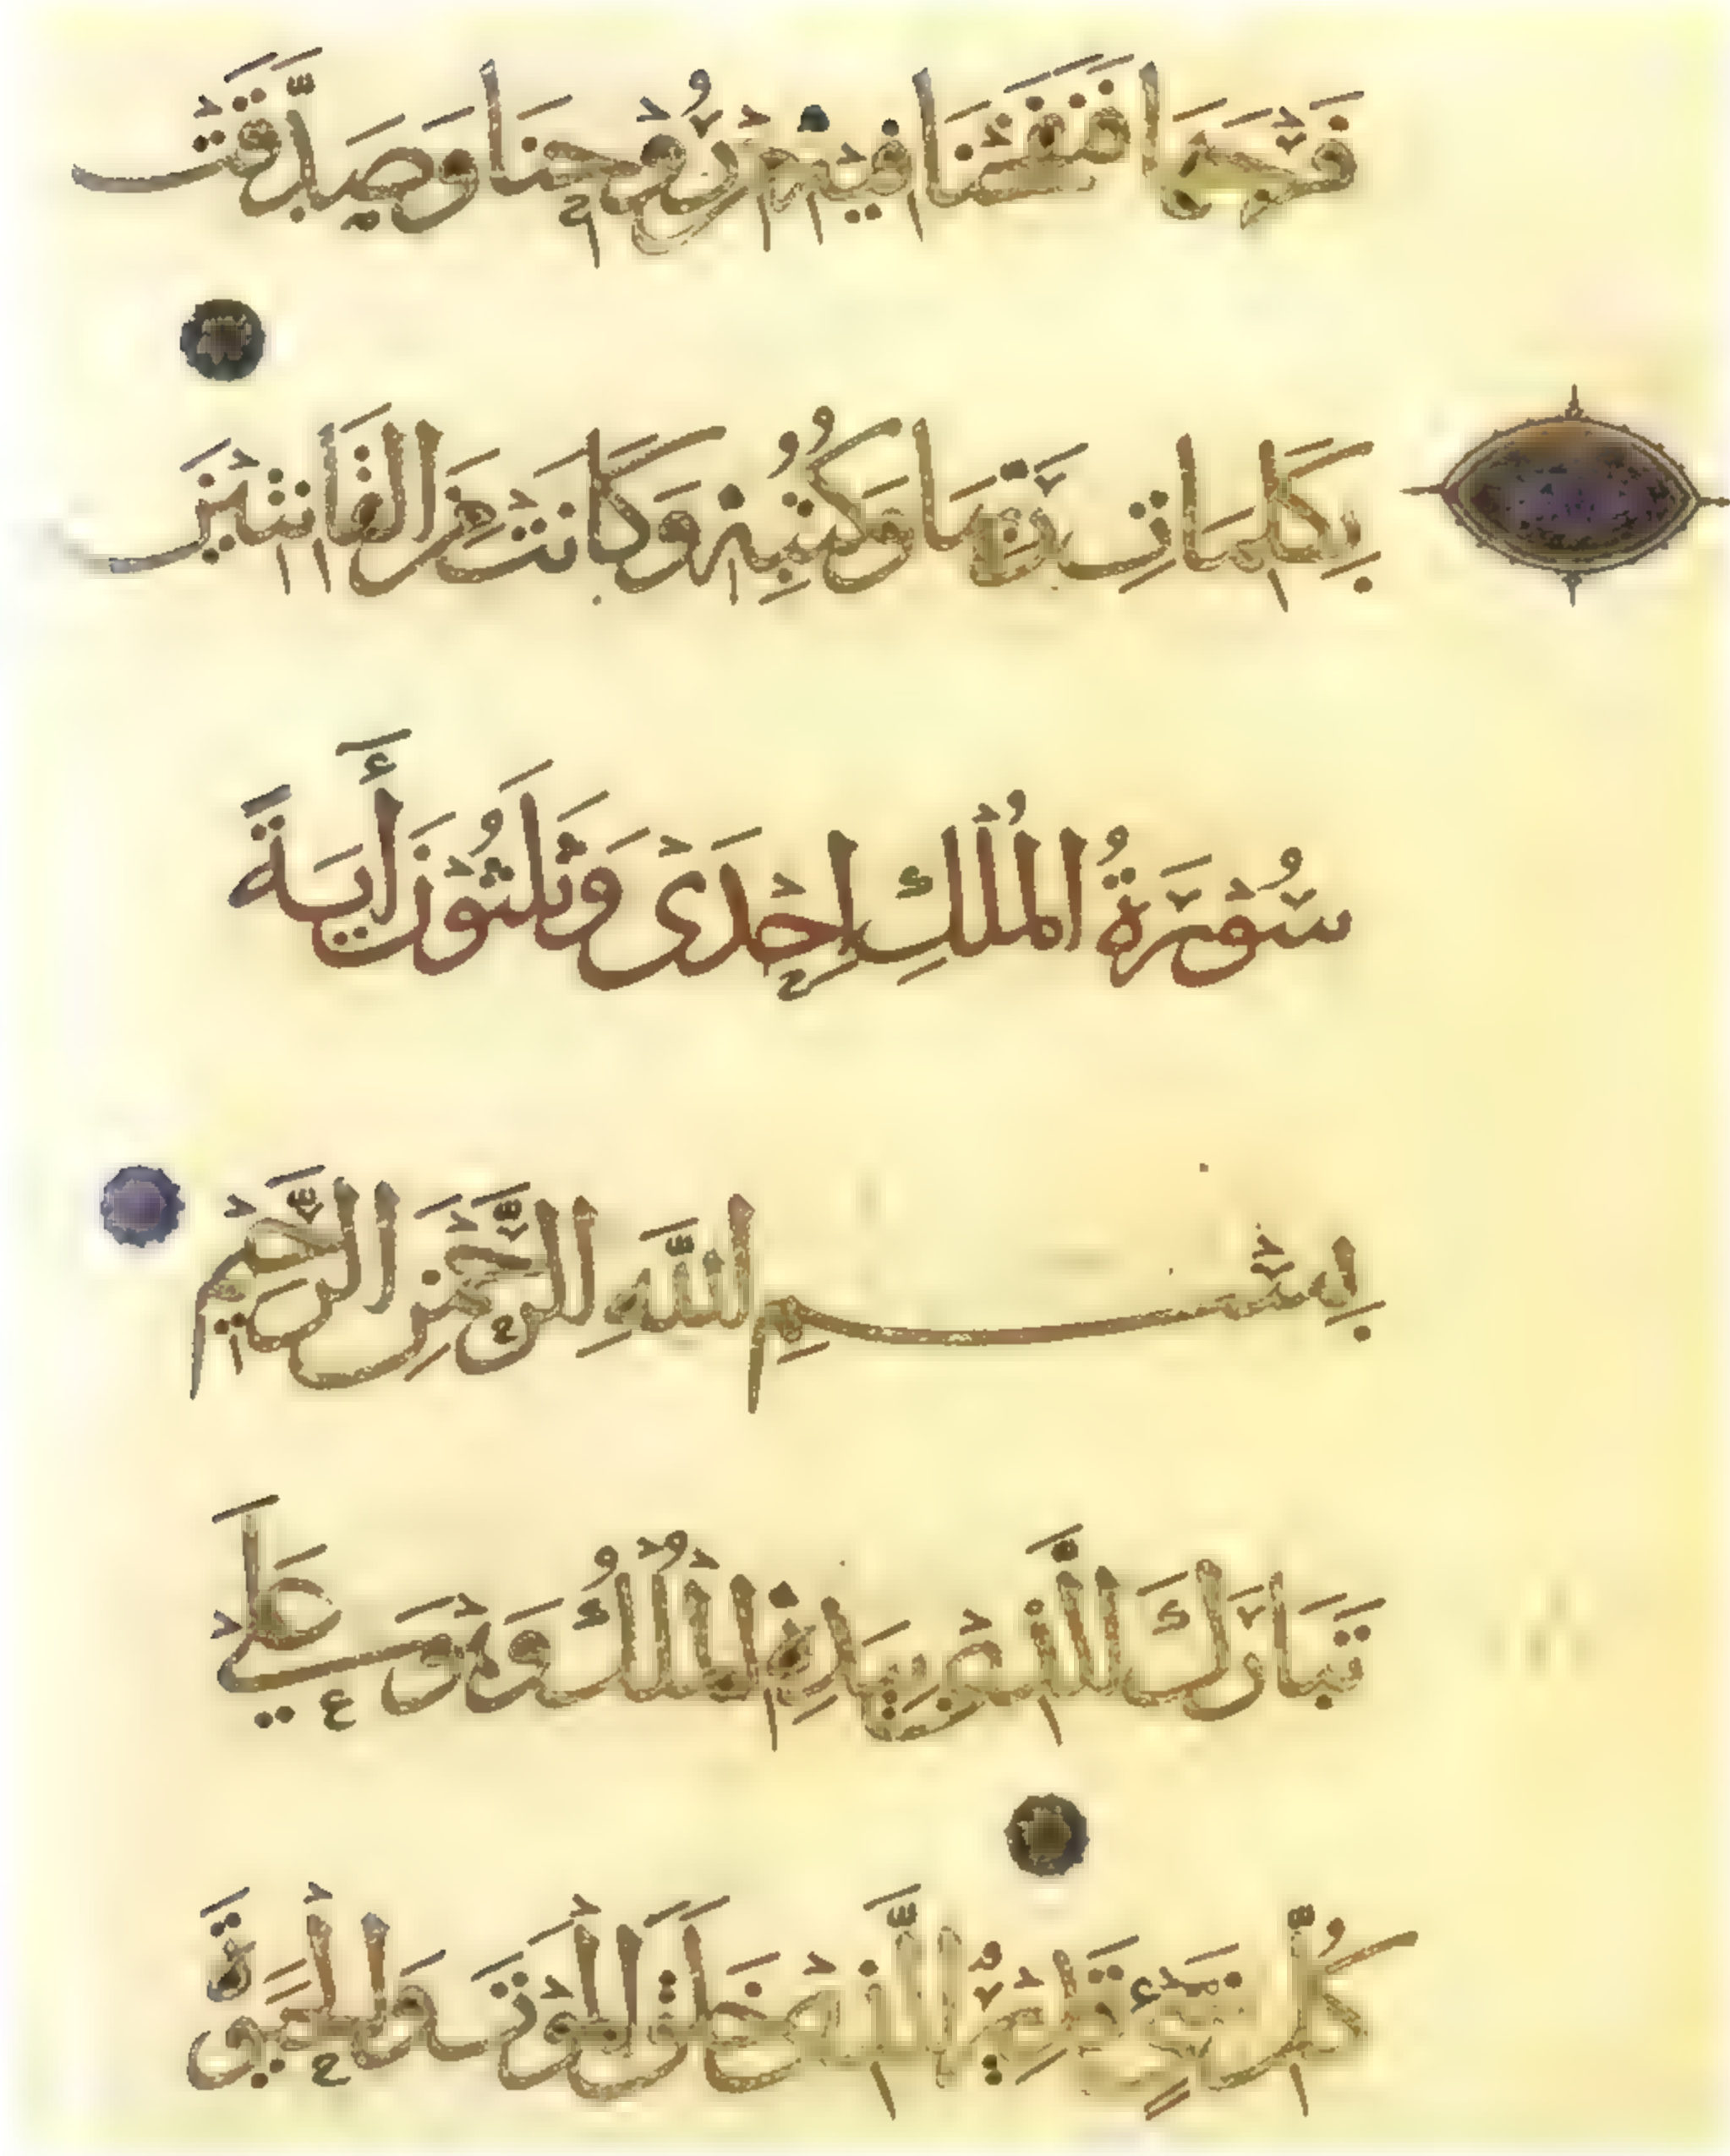 فَرْجَهَا فَنَفَخْنَا فِيهِ مِنْ رُوحِنَا وَصَدَّقَتْ
بِكَلِمَاتِ رَبِّهَا وَكُتُبِهِ وَكَانَتْ مِنَ الْقَانِتِينَ
سُوْرَةُ الْمُلْكِ اِحْدَى وَثَلَثُوْنَ أَيَةً
بِسْمِ اللَّهِ الرَّحْمَنِ الرَّحِيْمِ
تَبَارَكَ الَّذِي بِيَدِهِ الْمُلْكُ وَهُوَ عَلَى
كُلِّ شَيْءٍ قَدِيرٌ الَّذِي خَلَقَ الْمَوْتَ وَالْحَيَوةَ